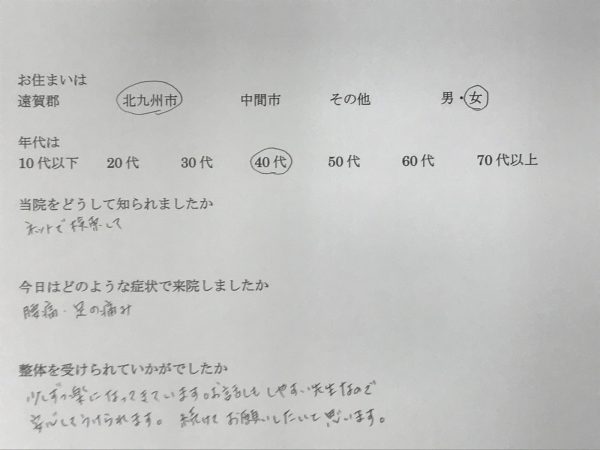 お住まいは
遠賀郡 北九州市 中間市 その他 男・女
年代は
10代以下 20代 30代 40代 50代 60代 70代以上
当院をどうして知られましたか
ネットで検索して
今日はどのような症状で来院しましたか
腰痛・足の痛み
整体を受けられていかがでしたか
少しずつ楽になってきています。お話しもしやすい先生なので
安心してうけられます。 続けてお願いしたいと思います。